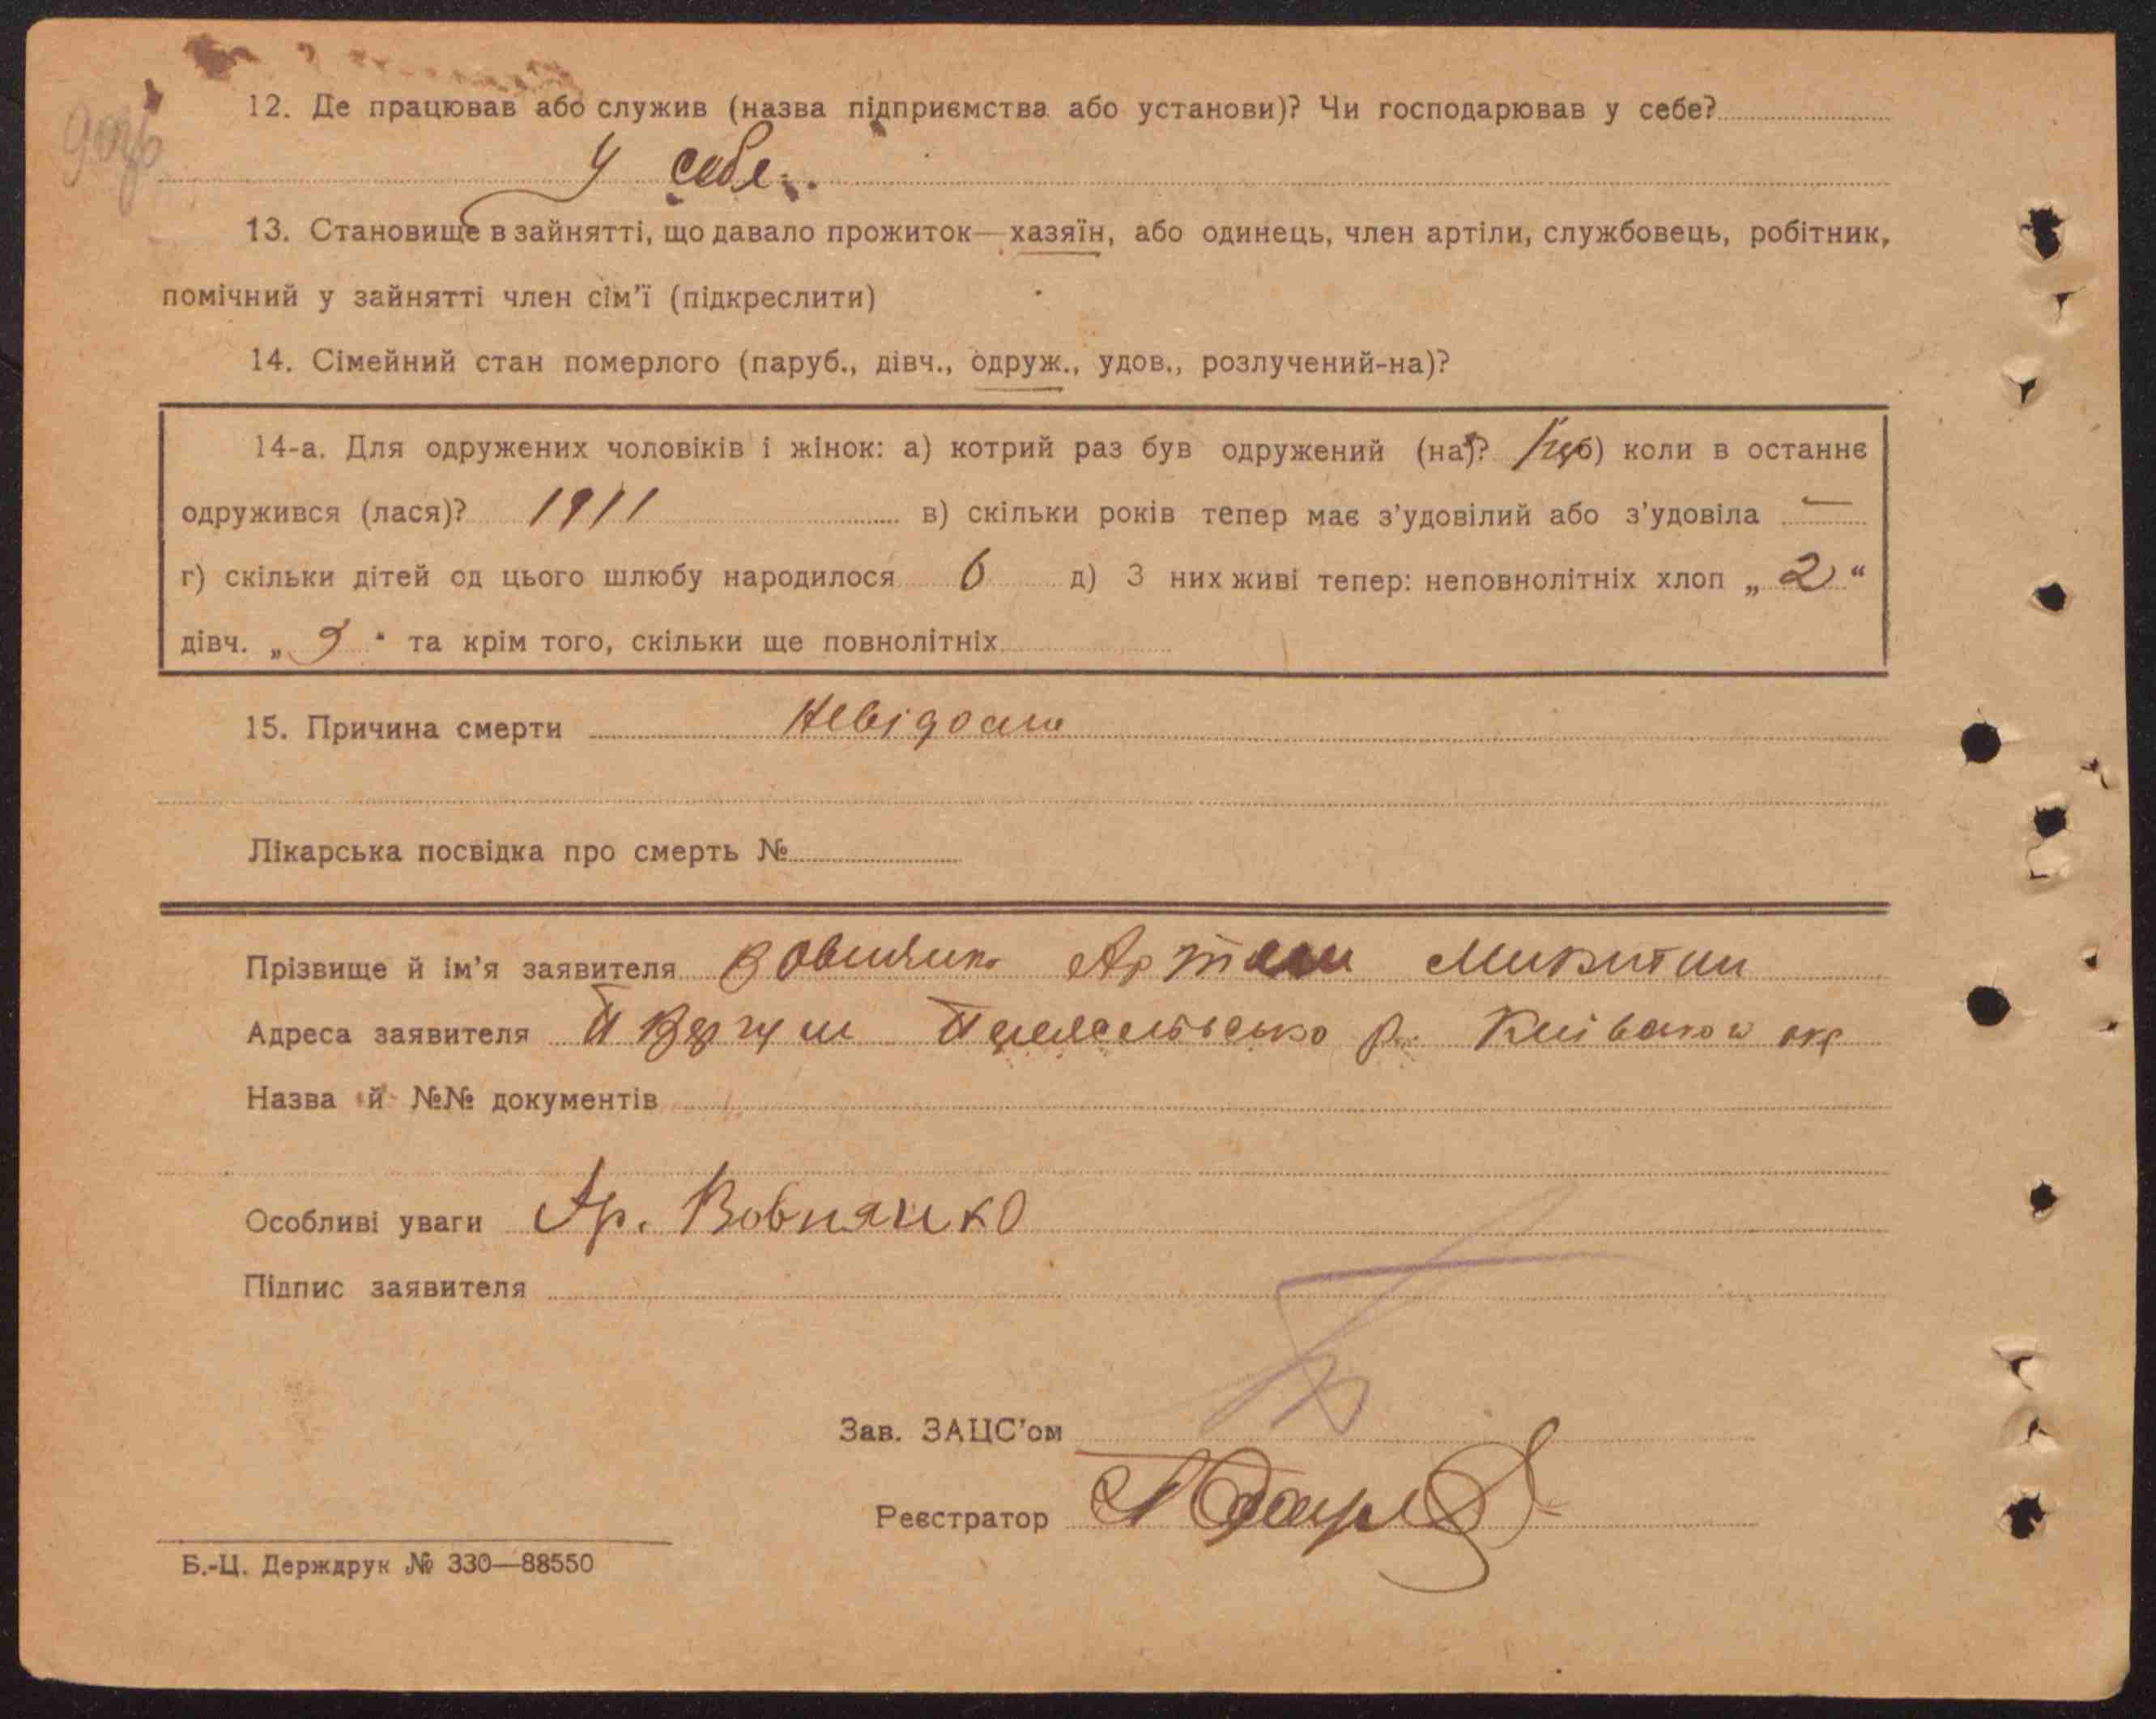 12. Де працював або служив (назва підприємства або установи)? Чи господарював у себе?
У себе.
13. Становище в зайнятті, що давало прожиток—хазяїн, або одинець, член артіли, службовець, робітник,
помічний у зайнятті член сім'ї (підкреслити)
14. Сімейний стан померлого (паруб., дівч., одруж., удов., розлучений-на)?
14-а. Для одружених чоловіків і жінок: а) котрий раз був одружений (на)? 1 б) коли в останнє
одружився (лася)? 1911 в) скільки років тепер має з'удовілий або з'удовіла —
г) скільки дітей од цього шлюбу народилося 6 д) З них живі тепер: неповнолітніх хлоп „ 2 “
дівч. „ “ та крім того, скільки ще повнолітніх
15. Причина смерти Невідома
Лікарська посвідка про смерть №
Прізвище й ім'я заявителя Вовнянко Артем Микитин
Адреса заявителя р. Київської окр
Назва й №№ документів
Особливі уваги Ар. Вовнянко
Підпис заявителя
Зав. ЗАЦС'ом
Реєстратор
Б.-Ц. Держдрук № 330—88550